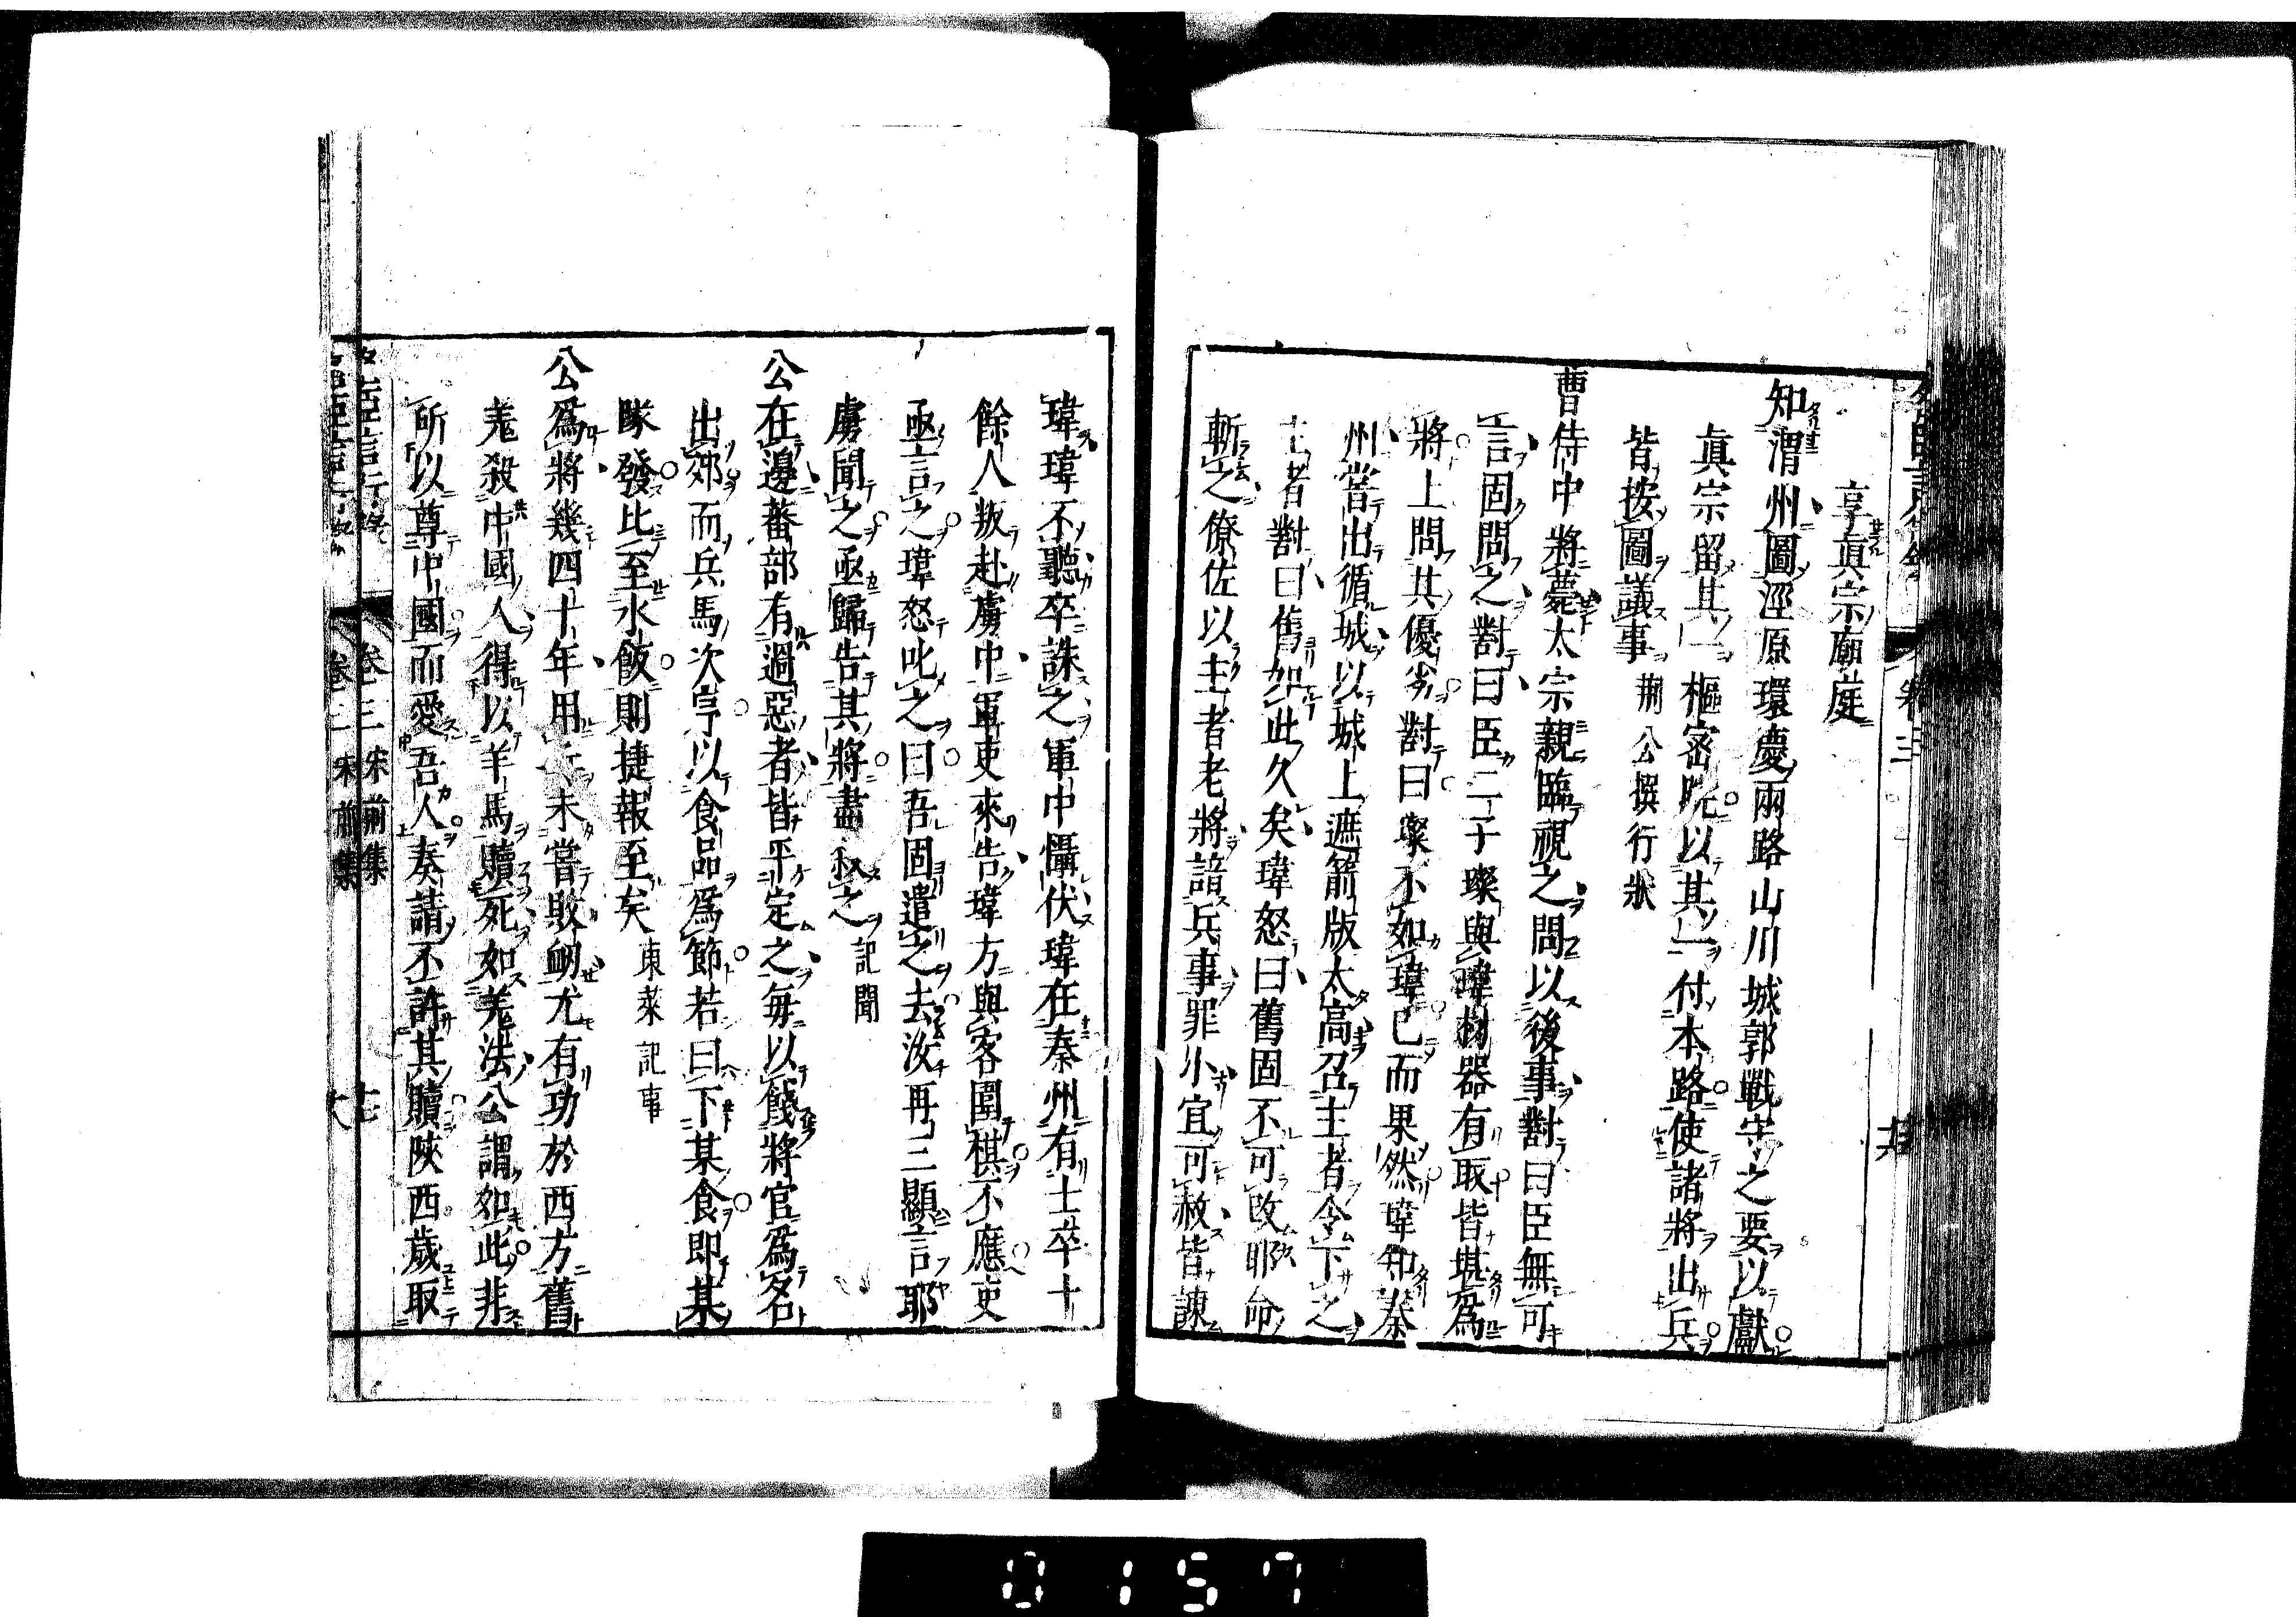 享真宗廟庭
知渭州圖涇原環慶兩路山川城郭戰守之要以獻
真宗留其一樞密院以其一付本路使諸將出兵
皆按圖議事 荆公撰行狀
曹侍中將薨太宗親臨視之問以後事對曰臣無可
言固問之對曰臣二子璨與瑋材器有取皆堪爲
將上問其優劣對曰璨不如瑋已而果然瑋知秦
州嘗出循城以城上遮箭版太高召主者令下之
主者對曰舊如此久矣瑋怒曰舊固不可改耶命
斬之僚佐以主者老將諳兵事罪小宜可赦皆諫
瑋瑋不聽卒誅之軍中懾伏瑋在秦州有士卒十
餘人叛赴虜中軍吏來告瑋方與客圍棋不應吏
亟言之瑋怒叱之曰吾固遣之去汝再三顯言耶
虜聞之亟歸告其將盡殺之 記聞
公在邊蕃部有過惡者皆平定之每以餞將官爲名
出郊而兵馬次亨以食品爲節若曰下某食即某
隊發比至水飯則捷報至矣 東萊記事
公爲將幾四十年用兵未嘗敗衂尤有功於西方舊
羗殺中國人得以羊馬贖死如羗法公謂如此非
所以尊中國而愛吾人奏請不許其贖陝西歲取
名臣言行錄 卷三 宋前集 十七